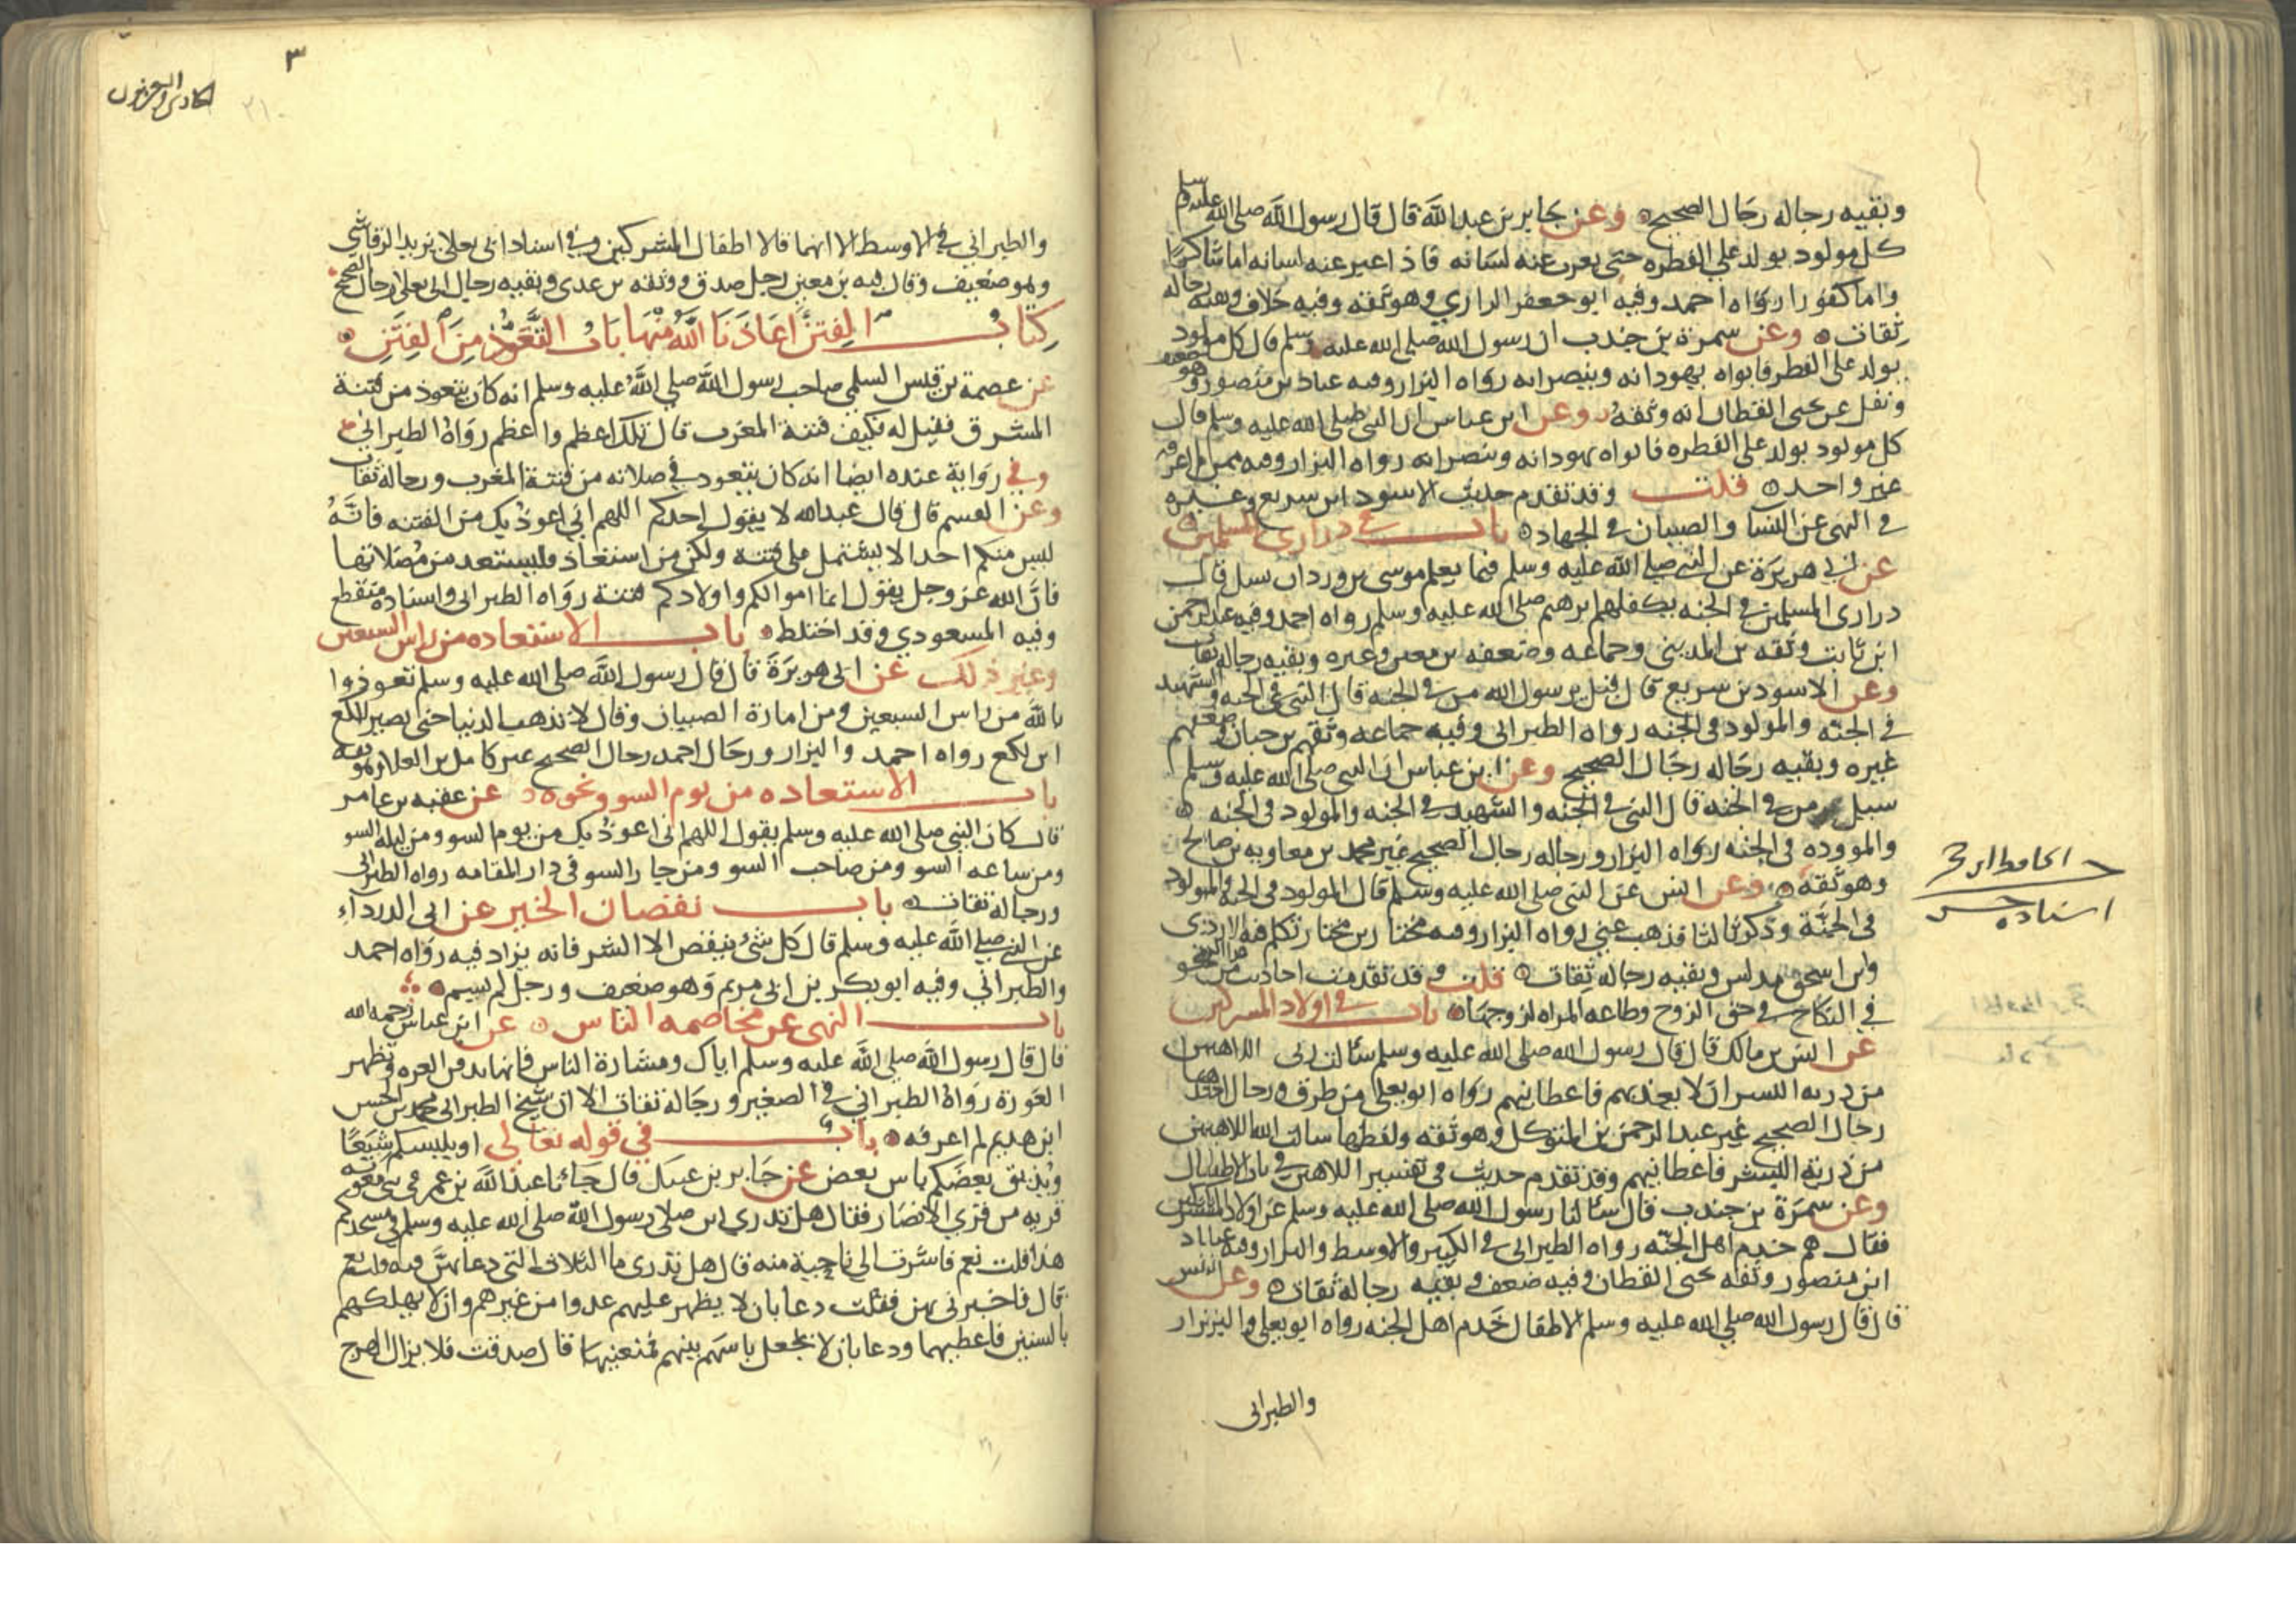 وبقيه رجاله رجال الصحيح وعن جابر بن عبد الله قال قال رسول الله صلى الله عليه وسلم
كل مولود يولد على الفطره حتى يعرب عنه لسانه فاذا عبر عنه لسانه اما شاكرا
واما كفورا رواه احمد وفيه ابو جعفر الرازي وهو ثقه وفيه خلاف وبقيه رجاله
ثقات وعن سمرة بن جندب ان رسول الله صلى الله عليه وسلم قال كل مولود
يولد على الفطر فابواه يهودانه وينصرانه رواه البزار وفيه عباد بن منصور وهو ضعيف
ونقل عن يحيى القطان انه وثقه وعن ابن عباس ان النبي صلى الله عليه وسلم قال
كل مولود يولد على الفطره فابواه يهودانه وينصرانه رواه البزار وفيه ممن لم اعرفه
غير واحد قلت وقد تقدم حديث الاسود ابن سريع وغيره
في النهى عن النسا والصبيان في الجهاد باب في دراري المسلمين
عن ابي هريرة عن النبي صلى الله عليه وسلم فيما يعلم موسى بن وردان سيل قال
دراري المسلمين في الجنه يكفلهم ابرهيم صلى الله عليه وسلم رواه احمد وفيه عبد الرحمن
ابن ثابت وثقه بن المديني وجماعه وضعفه بن معين وغيره وبقيه رجاله ثقات
وعن الاسود بن سريع قال قيل يرسول الله من في الجنه قال النبي في الجنه والشهيد
في الجنه والمولود في الجنه رواه الطبراني وفيه جماعه وثقهم بن حبان وضعفهم
غيره وبقيه رجاله رجال الصحيح وعن ابن عباس ان النبي صلى الله عليه وسلم
سيل من في الجنه قال النبي في الجنه والشهيد في الجنه والمولود في الجنه
والمووده في الجنه رواه البزار ورجاله رجال الصحيح غير محمد بن معاويه بن صالح
وهو ثقه وعن انس عن النبي صلى الله عليه وسلم قال المولود في الجنة والمولود
في الجنة وذكر ثالثا فذهب عني رواه البزار وفيه مختار بن مختار تكلم فيه الازدى
وابن اسحق مدلس وبقيه رجاله ثقات قلت وقد تقدمت احاديث من هذا النحو
في النكاح في حق الزوج وطاعه المراه لزوجها باب في اولاد المشركين
عن انس بن مالك قال قال رسول الله صلى الله عليه وسلم سالت ربى اللاهين
من ذريه البشر ان لا يعذبهم فاعطانيهم رواه ابو يعلى من طرق ورجال احدها
رجال الصحيح غير عبد الرحمن بن المتوكل وهو ثقه ولفظها سالت الله اللاهين
من ذرية البشر فاعطانيهم وقد تقدم حديث في تفسير اللاهين في باب الاطفال
وعن سمرة بن جندب قال سالنا رسول الله صلى الله عليه وسلم عن اولاد المشركين
فقال هم خدم اهل الجنه رواه الطبراني في الكبير والاوسط والبزار وفيه عباد
ابن منصور وثقه يحيى القطان وفيه ضعف وبقيه رجاله ثقات وعن انس
قال قال رسول الله صلى الله عليه وسلم الاطفال خدم اهل الجنه رواه ابو يعلى والبزار
والطبراني
اسناده حسن
٣
الحادي والعشرون
والطبراني في الاوسط الا انهما قالا اطفال المشركين وفي اسناد ابي يعلا يزيد الرقاشي
وهو ضعيف وقال فيه بن معين رجل صدق ووثقه بن عدى وبقيه رجال ابي يعلا رجال الصحيح
كتاب الفتن اعاذنا الله منها باب التعوذ من الفتن
عن عصمة بن قيس السلمي صاحب رسول الله صلى الله عليه وسلم انه كان يتعوذ من فتنة
المشرق فقيل له فكيف فتنة المغرب قال تلك اعظم واعظم رواه الطبراني
وفي رواية عنده ايضا انه كان يتعود في صلاته من فتنة المغرب ورجاله ثقات
وعن القسم قال قال عبد الله لا يقول احدكم اللهم اني اعوذ بك من الفتنه فانه
ليس منكم احد الا يشتمل على فتنة ولكن من استعاذ فليستعد من مضلاتها
فان الله عز وجل يقول انما اموالكم واولادكم فتنة رواه الطبراني واسناده منقطع
وفيه المسعودي وقد اختلط باب الاستعاده من راس السبعين
وغير ذلك عن ابى هريرة قال قال رسول الله صلى الله عليه وسلم تعوذوا
بالله من راس السبعين ومن امارة الصبيان وقال لا تذهب الدنيا حتى يصير للكع
ابن لكع رواه احمد والبزار ورجال احمد رجال الصحيح غير كامل بن العلا وهو ثقه
باب الاستعاده من يوم السو ونحوه عن عقبه بن عامر
قال كان النبي صلى الله عليه وسلم يقول اللهم اني اعوذ بك من يوم السو ومن ليله السو
ومن ساعه السو ومن صاحب السو ومن جار السو في دار المقامه رواه الطبراني
ورجاله ثقات باب نقصان الخير عن ابى الدردآء
عن النبي صلى الله عليه وسلم قال كل شئ ينقص الا الشر فانه يزاد فيه رواه احمد
والطبراني وفيه ابو بكر بن ابى مريم وهو ضعيف ورجل لم يسم
باب النهى عن مخاصمه الناس عن ابن عباس رحمه الله
قال قال رسول الله صلى الله عليه وسلم اياك ومشارة الناس فانها تدفن العره وتظهر
العورة رواه الطبراني في الصغير ورجاله ثقات الا ان شيخ الطبراني محمد بن الحسن
ابن هديم لم اعرفه باب في قوله تعالى او يلبسكم شيعًا
ويذيق بعضكم باس بعض عن جابر بن عتيك قال جائنا عبد الله بن عمر في بنى معويه
قريه من قري الانصار فقال هل تدري اين صلا رسول الله صلى الله عليه وسلم في مسجدكم
هذا قلت نعم فاشرت الى ناحية منه قال هل تدرى ما الثلاث التى دعا بهن فيه قلت نعم
قال فاخبرنى بهن فقلت دعا بان لا يظهر عليهم عدوا من غيرهم وان لا يهلكهم
بالسنين فاعطيهما ودعا بان لا يجعل باسهم بينهم فمنعنيها قال صدقت فلا يزال الهرج